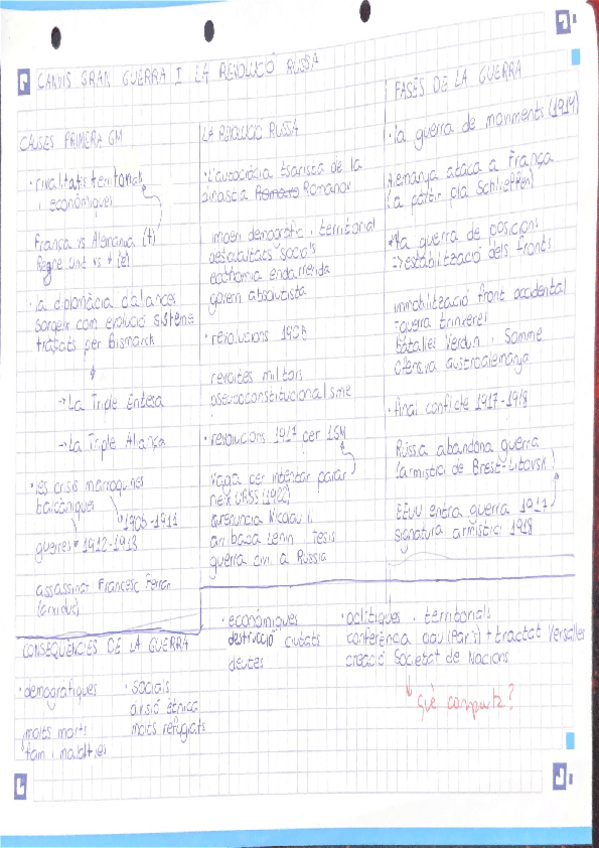 CANVIS GRAN GUERRA I LA REVOLUCIÓ RUSSA
CAUSES PRIMERA GM
· rivalitats territorials
i econòmiques
França vs Alemanya (t)
Regne Unit vs + (e)
· la diplomàcia d'aliances
sorgeix com evolució sistema
tractats per Bismarck
→ La Triple Entesa
→ La Triple Aliança
· les crisis marroquines
balcàniques
1905-1911
guerres 1912-1913
assassinat Francesc Ferran
(arxiduc)
LA REVOLUCIÓ RUSSA
· L'autocràcia tsarista de la
dinastia Romanov
imperi demogràfic i territorial
desigualtats socials
economia endarrerida
govern absolutista
· revolucions 1905
revoltes militars
pseudoconstitucionalisme
· revolucions 1917 per 1GM
vaga per intentar parar
neix URSS (1922)
renuncia Nicolau II
arribada Lenin i Tesis
guerra civil a Rússia
FASES DE LA GUERRA
· la guerra de moviments (1914)
Alemanya ataca a França
(a partir pla Schlieffen)
· la guerra de posicions
=> estabilització dels fronts
immobilització front occidental
guerra trinxeres
batalles Verdun i Somme
ofensiva austroalemanya
· final conflicte 1917-1918
Rússia abandona guerra
(armistici de Brest-Litovsk)
EEUU entra guerra 1917
signatura armistici 1918
CONSEQÜÈNCIES DE LA GUERRA
· demogràfiques
molts morts
fam i malalties
· socials
divisió ètnica
molts refugiats
· econòmiques
destrucció ciutats
deutes
· polítiques i territorials
conferència pau (París) + tractat Versalles
creació Societat de Nacions
↓
Què comporta?